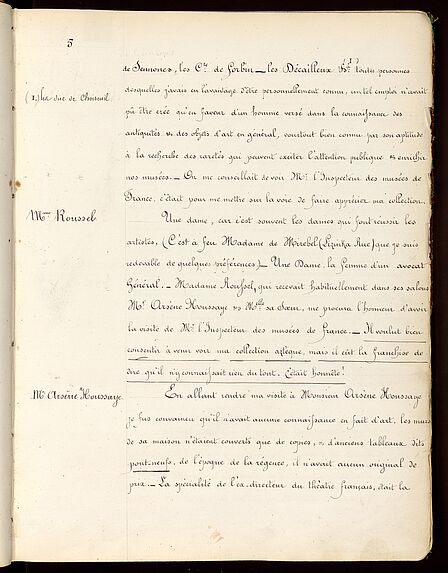 5
de Sennones, les Cte de Forbin — les Décailleux &a toutes personnes
(1.) le duc de Choiseuil
desquelles j'avais eu l'avantage d'être personnellement connu, un tel emploi n'avait
pû être créé qu'en faveur d'un homme versé dans la connaissance des
antiquités & des objets d'art en général, & surtout bien connu par son aptitude
à la recherche des raretés qui peuvent exciter l'attention publique & enrichir
nos musées. — On me conseillait de voir Mr. l'Inspecteur des musées de
France, c'était pour me mettre sur la voie de faire apprécier ma collection.
Mme Roussel
Une dame, car c'est souvent les dames qui font réussir les
artistes, (C'est à feu Madame de Mirebel (Lizinka Rue) que je suis
redevable de quelques préférences) — Une Dame, la femme d'un avocat
Général. — Madame Roussel, qui recevait habituellement dans ses salons
Mr. Arsène Houssaye & Melle sa Sœur, me procura l'honneur d'avoir
la visite de Mr. l'Inspecteur des musées de France. — Il voulut bien
consentir à venir voir ma collection aztèque, mais il eût la franchise de
dire qu'il n'y connaissait rien du tout. C'était honnête!
Mr. Arsène Houssaye.
En allant rendre ma visite à Monsieur Arsène Houssaye
je fus convaincu qu'il n'avait aucune connaissance en fait d'art, les murs
de sa maison n'étaient couverts que de copies, & d'anciens tableaux dits
pont-neufs, de l'époque de la régence, il n'avait aucun original de
prix. — La spécialité de l'ex-directeur du théâtre français, était la